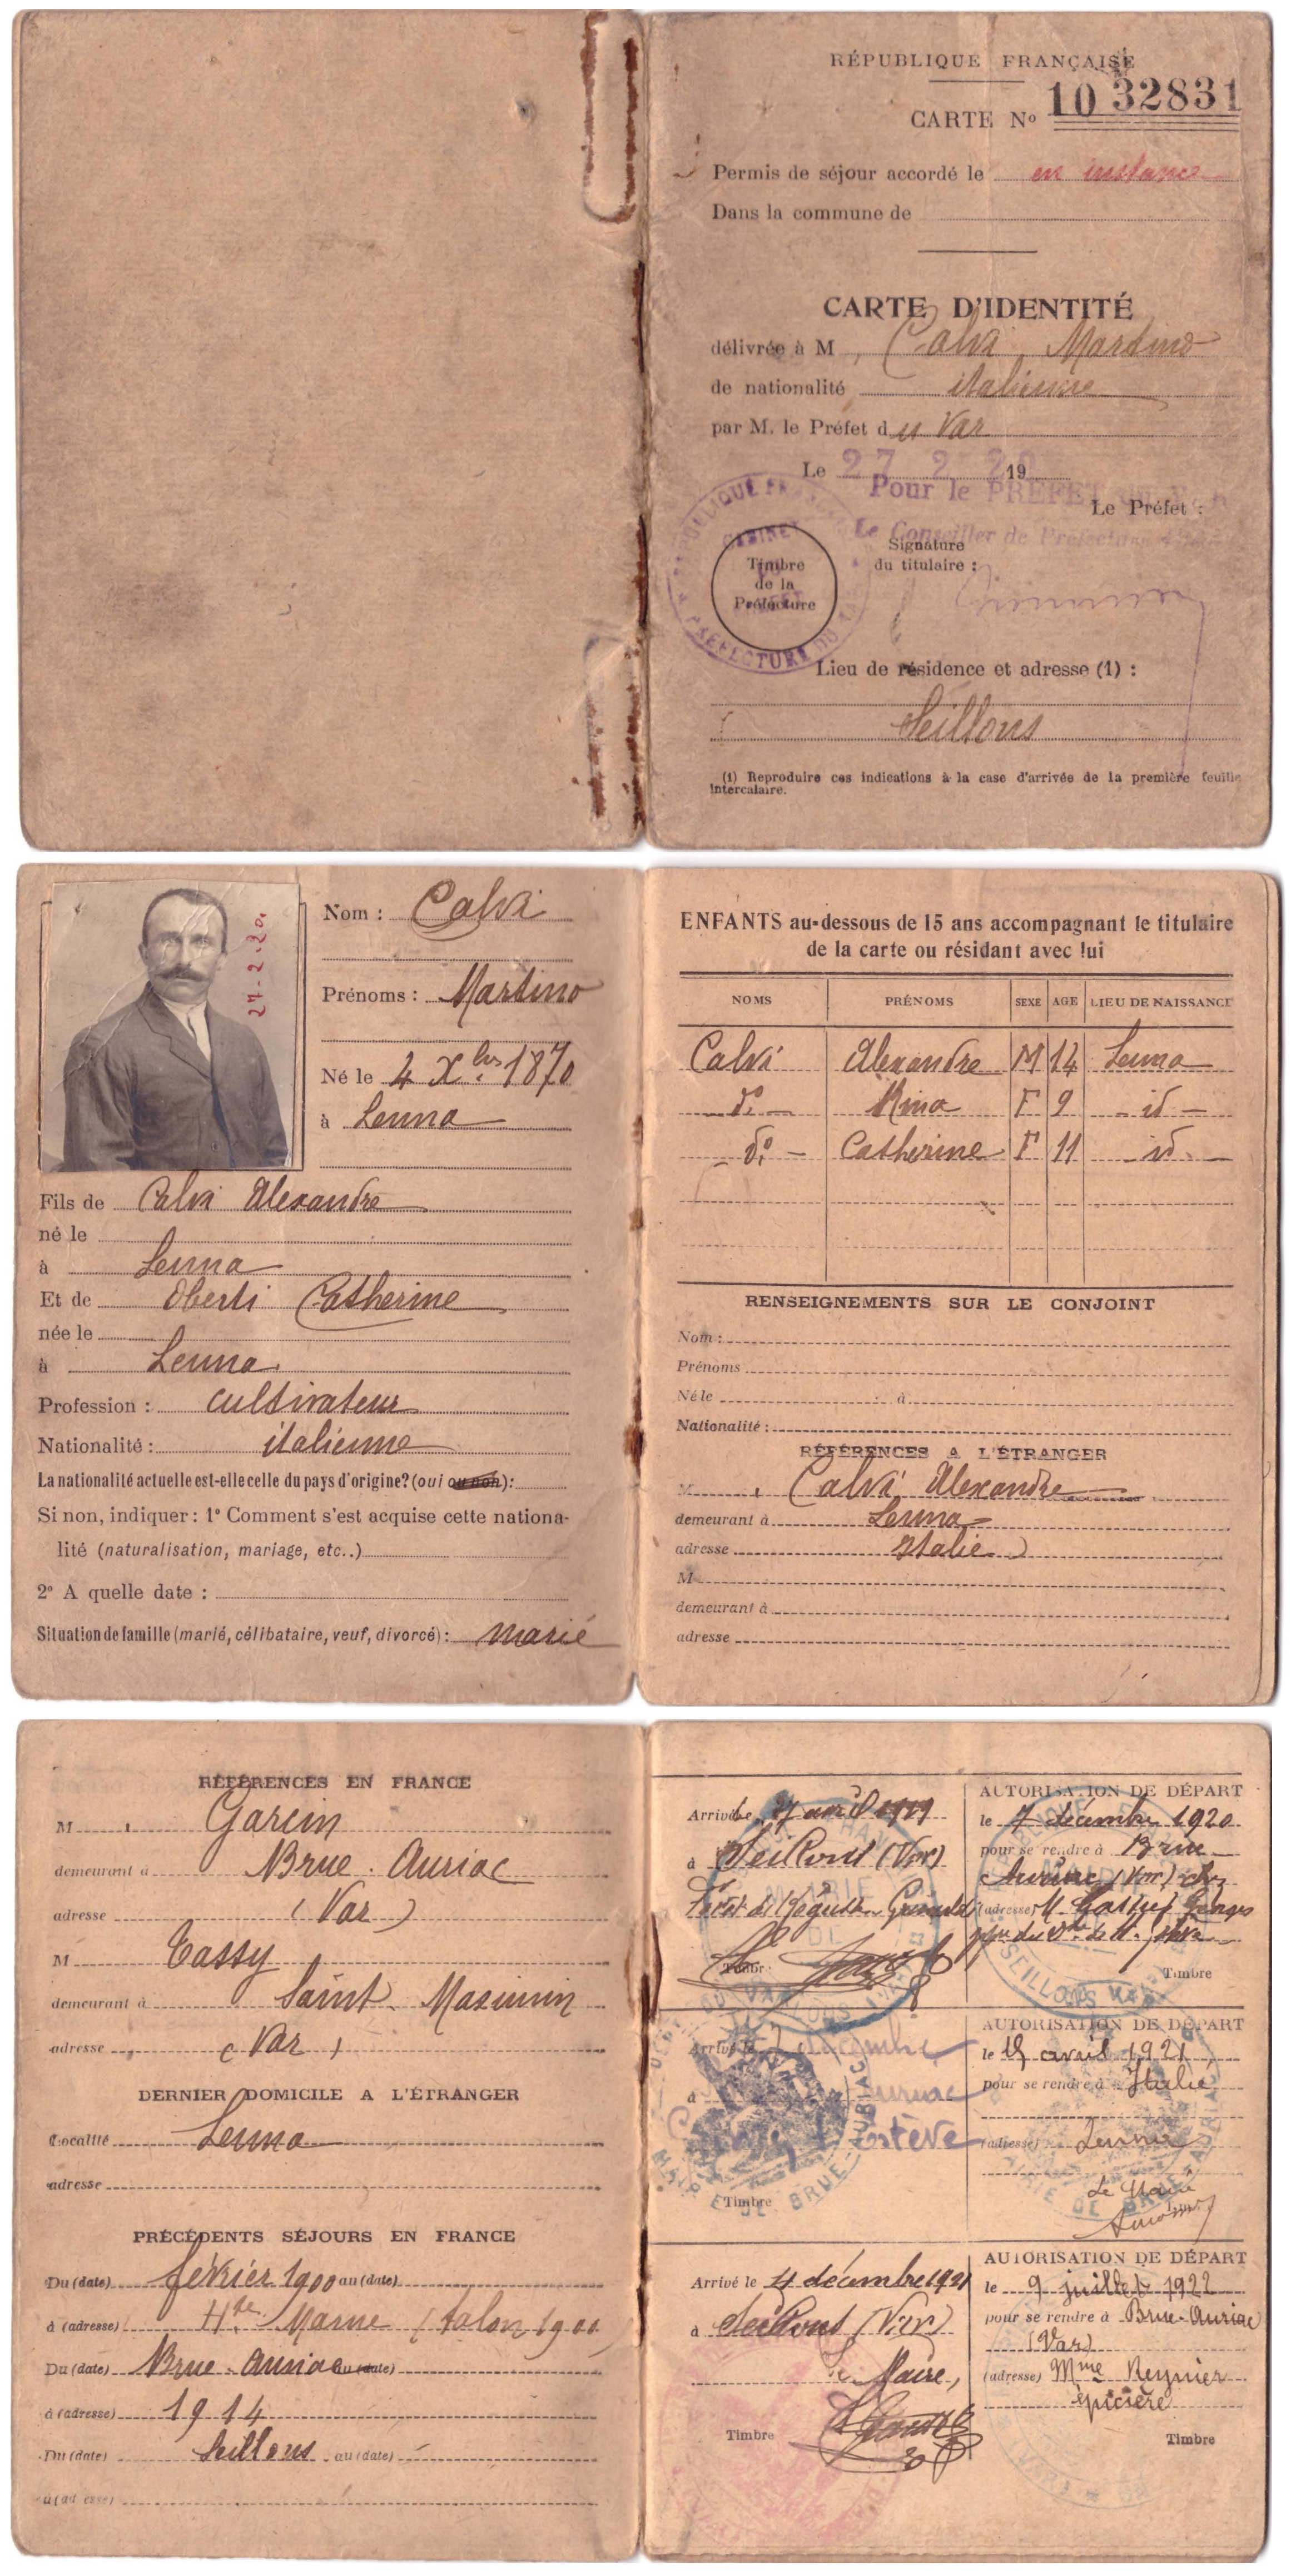 RÉPUBLIQUE FRANÇAISE
CARTE No 10 32831
Permis de séjour accordé le en instance
Dans la commune de
CARTE D'IDENTITÉ
délivrée à M Calvi Martino
de nationalité italienne
par M. le Préfet du Var
Le 27 2 20 19
Pour le PREFET
Le Préfet :
Le Conseiller de Préfecture
Signature
du titulaire :
Timbre
de la
Préfecture
Lieu de résidence et adresse (1) :
Seillons
(1) Reproduire ces indications à la case d'arrivée de la première feuille
intercalaire.
27-2-20
Nom : Calvi
Prénoms : Martino
Né le 4 Xbre 1870
à Lenna
Fils de Calvi Alexandre
né le
à Lenna
Et de Oberti Catherine
née le
à Lenna
Profession : cultivateur
Nationalité : italienne
La nationalité actuelle est-elle celle du pays d'origine? (oui ou non) :
Si non, indiquer : 1° Comment s'est acquise cette nationa-
lité (naturalisation, mariage, etc..)
2° A quelle date :
Situation de famille (marié, célibataire, veuf, divorcé) : marié
ENFANTS au-dessous de 15 ans accompagnant le titulaire
de la carte ou résidant avec lui
NOMS PRÉNOMS SEXE AGE LIEU DE NAISSANCE
Calvi Alexandre M 14 Lenna
do Rina F 9 id
do Catherine F 11 id
RENSEIGNEMENTS SUR LE CONJOINT
Nom :
Prénoms
Né le à
Nationalité :
RÉFÉRENCES A L'ÉTRANGER
M Calvi Alexandre
demeurant à Lenna
adresse Italie
M
demeurant à
adresse
RÉFÉRENCES EN FRANCE
M Garcin
demeurant à Brue-Auriac
adresse (Var)
M Tassy
demeurant à Saint-Maximin
adresse (Var)
DERNIER DOMICILE A L'ÉTRANGER
Localité Lenna
adresse
PRÉCÉDENTS SÉJOURS EN FRANCE
Du (date) février 1900 au (date)
à (adresse) Hte Marne
Du (date) Brue-Auriac au (date)
à (adresse) 1914
Du (date) Seillons au (date)
à (adresse)
Arrivé le 27 avril 1919
à Seillons (Var)
Timbre
AUTORISATION DE DÉPART
le 7 décembre 1920
pour se rendre à Brue
Auriac (Var) chez
(adresse) M. Georges
Timbre
SEILLONS VAR
Arrivé le décembre
à Auriac
Estève
Timbre
MAIRIE DE BRUE-AURIAC
AUTORISATION DE DÉPART
le 15 avril 1921
pour se rendre à Italie
(adresse) Lenna
Le Maire
Arrivé le 4 décembre 1921
à Seillons (Var)
Le Maire,
Timbre
AUTORISATION DE DÉPART
le 9 juillet 1922
pour se rendre à Brue-Auriac
(Var)
(adresse) Mme Reynier
épicière
Timbre